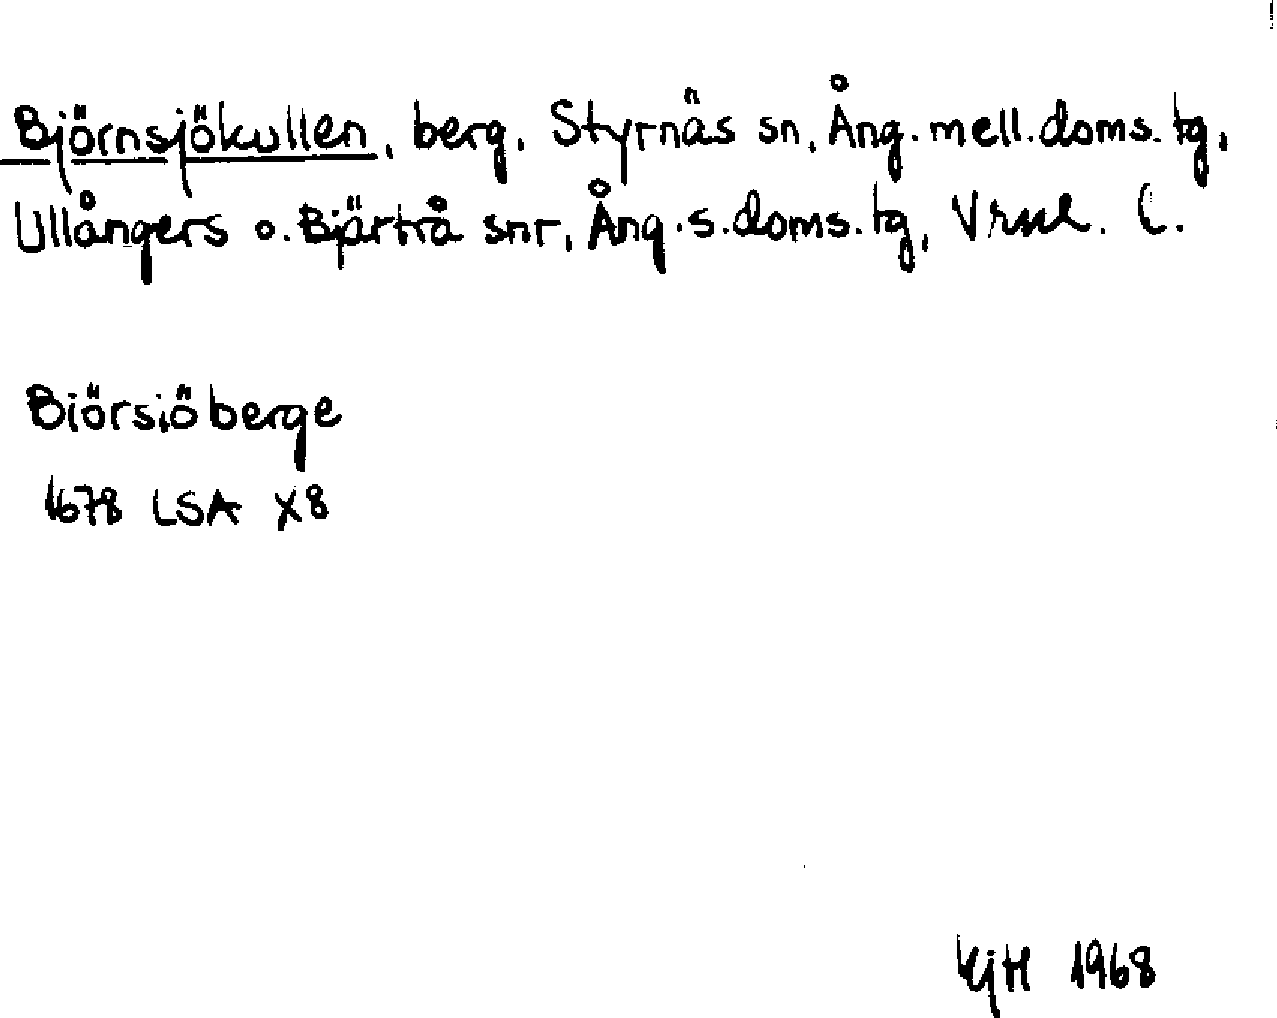 Björnsjökullen, berg, Styrnäs sn, Ång. mell. doms. tg,
Ullångers o. Bjärtrå snr, Ång. s. doms. tg, Vrml. l.
Biörsiöberge
1678 LSA X8
KjH 1968